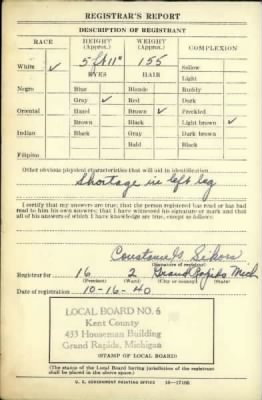 REGISTRAR'S REPORT
DESCRIPTION OF REGISTRANT
RACE HEIGHT (Approx.) WEIGHT (Approx.) COMPLEXION
White ✓ 5 ft 11" 155 Sallow
EYES HAIR Light
Negro Blue Blonde Ruddy
Gray ✓ Red Dark
Oriental Hazel Brown ✓ Freckled
Brown Black Light brown ✓
Indian Black Gray Dark brown
Bald Black
Filipino
Other obvious physical characteristics that will aid in identification
Shortage in left leg
I certify that my answers are true; that the person registered has read or has had
read to him his own answers; that I have witnessed his signature or mark and that
all of his answers of which I have knowledge are true, except as follows:
(Signature of registrar)
Registrar for 16 2 Grand Rapids Mich
(Precinct) (Ward) (City or county) (State)
Date of registration 10-16-40
LOCAL BOARD NO. 6
Kent County
433 Houseman Building
Grand Rapids, Michigan
(STAMP OF LOCAL BOARD)
(The stamp of the Local Board having jurisdiction of the registrant
shall be placed in the above space.)
U. S. GOVERNMENT PRINTING OFFICE 16—17105